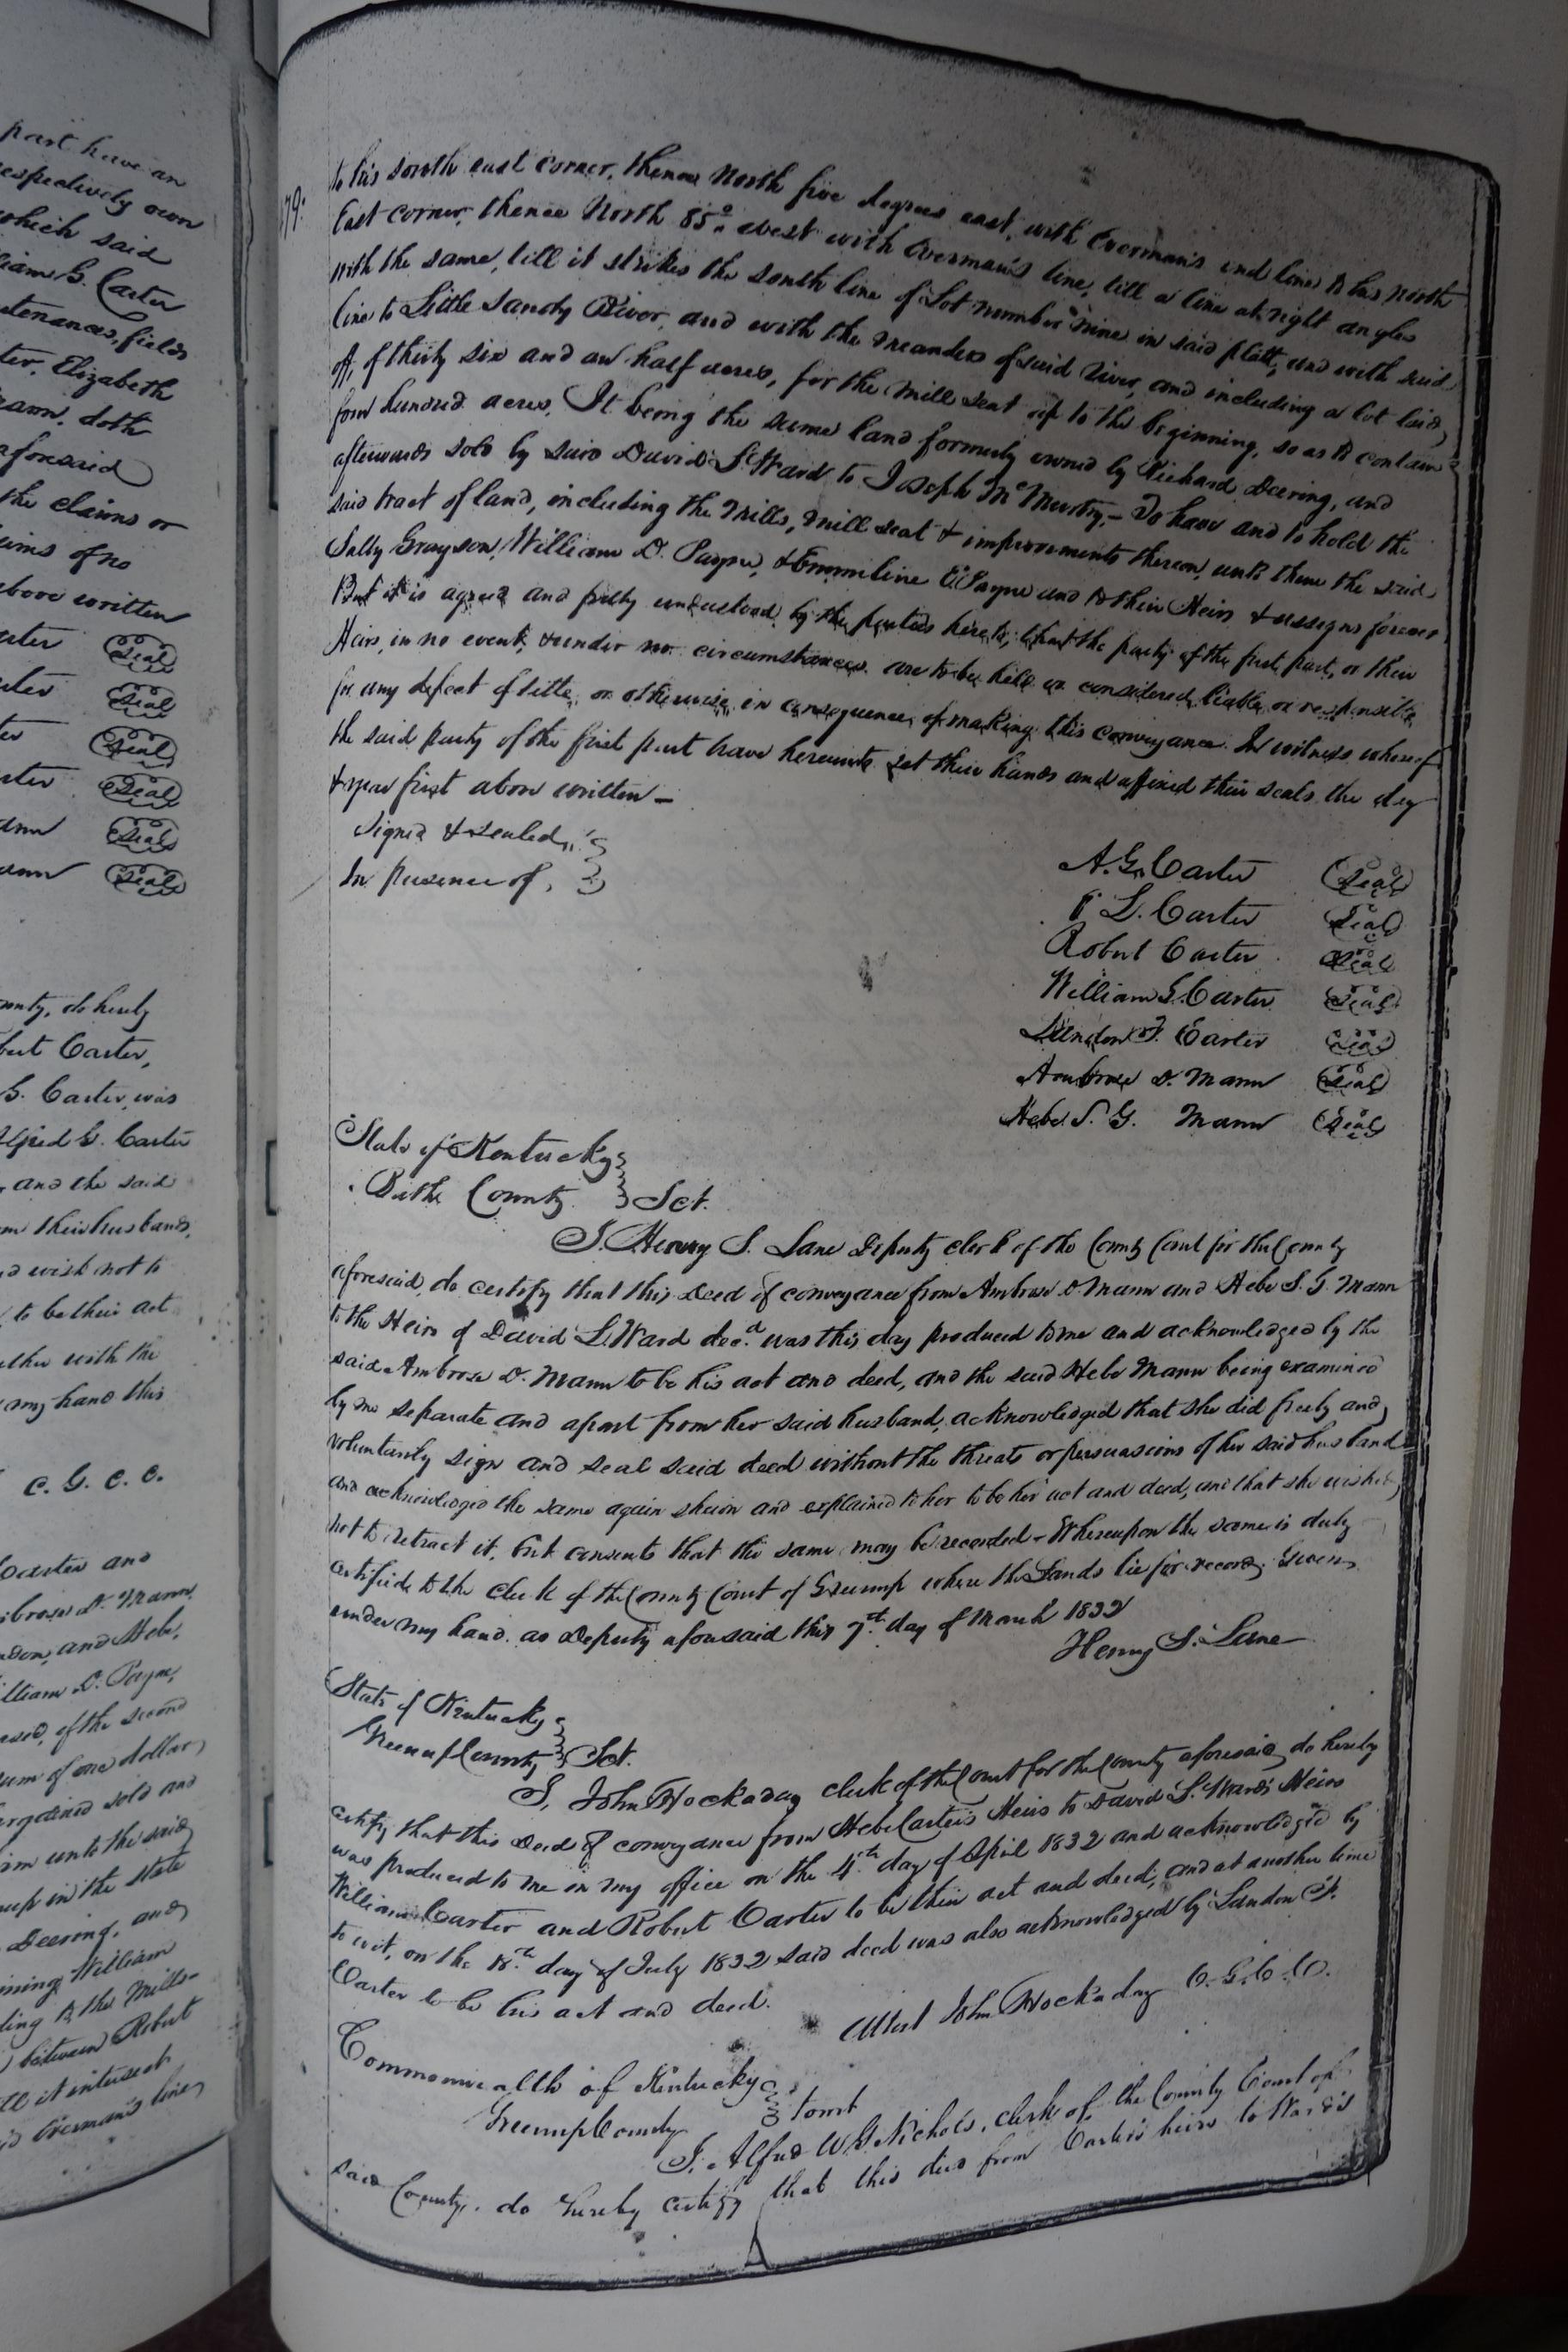 part have an
respectively own
which said
liam G. Carter
tenances, fields
ter, Elizabeth
mann, doth
aforesaid
the claims or
aims of no
above written
arter Seal
arter Seal
ter Seal
arter Seal
ann Seal
ann Seal
ounty, do hereby
bert Carter,
G. Carter, was
Alfred G. Carter
and the said
om their husbands,
nd wish not to
to be their act
ether with the
my hand this
C. G. C. C.
Carter and
mbrose D. Mann,
and Hebe,
illiam D. Payne,
ased, of the second
sum of one dollar,
argained sold and
unto the said
nup in the state
Deering, and
ining William
ding to the Mills-
between Robert
till it intersects
id Everman's line,
79.
to his south east corner, thence North five degrees east, with Everman's end line to his North
East corner, thence North 85° West with Everman's line, till a line at right angles
with the same, till it strikes the south line of Lot number nine in said platt, and with said
line to Little Sandy River, and with the meanders of said river, and including a lot laid
off, of thirty six and an half acres, for the mill seat up to the beginning, so as to contain
four hundred acres. It being the same land formerly owned by Richard Deering, and
afterwards sold by said David L. Ward to Joseph McMurtry,- To have and to hold the
said tract of land, including the Mills, mill seat & improvements thereon, unto them the said
Sally Grayson, William D. Payne, & Emmiline E. Payne and to their Heirs & assigns forever
But it is agreed and fully understood by the parties hereto, that the party of the first part, or their
Heirs, in no event, & under no circumstances are to be held or considered liable or responsible
for any defect of title, or otherwise, in consequence of making this conveyance. In witness whereof
the said party of the first part have hereunto set their hands and affixed their seals the day
& year first above written-
Signed & sealed,
In presence of,
A. G. Carter Seal
L. Carter Seal
Robert Carter Seal
William G. Carter Seal
Landon F. Carter Seal
Ambrose D. Mann Seal
Hebe S. G. Mann Seal
State of Kentucky
Bathe County Sct.
I. Henry S. Lane Deputy clerk of the County Court for the County
aforesaid, do certify that this Deed of conveyance from Ambrose D. Mann and Hebe S. G. Mann
to the Heirs of David L. Ward decd. was this day produced to me and acknowledged by the
said Ambrose D. Mann to be his act and deed, and the said Hebe Mann being examined
by me separate and apart from her said husband, acknowledged that she did freely and
voluntarily sign and seal said deed without the threats or persuasions of her said husband
and acknowledged the same again shewn and explained to her to be her act and deed, and that she wishes
not to retract it, but consents that the same may be recorded - Whereupon the same is duly
certified to the clerk of the County Court of Greenup where the Lands lie for record. Given
under my hand as Deputy aforesaid this 7st day of March 1832
Henry S. Lane
State of Kentucky
Greenup County Sct.
I, John Hockaday clerk of the Court for the County aforesaid, do hereby
certify that this Deed of conveyance from Hebe Carter's Heirs to David L. Ward's Heirs
was produced to me in my office on the 4th day of April 1832 and acknowledged by
William Carter and Robert Carter to be their act and deed, and at another time
to wit, on the 18th day of July 1832 said deed was also acknowledged by Landon F.
Carter to be his act and deed.
Attest John Hockaday C. G. C. C.
Commonwealth of Kentucky
Greenup County towit
I, Alfred W. G. Nichols, clerk of the County Court of
said County, do hereby certify that this deed from Carter's heirs to Ward's